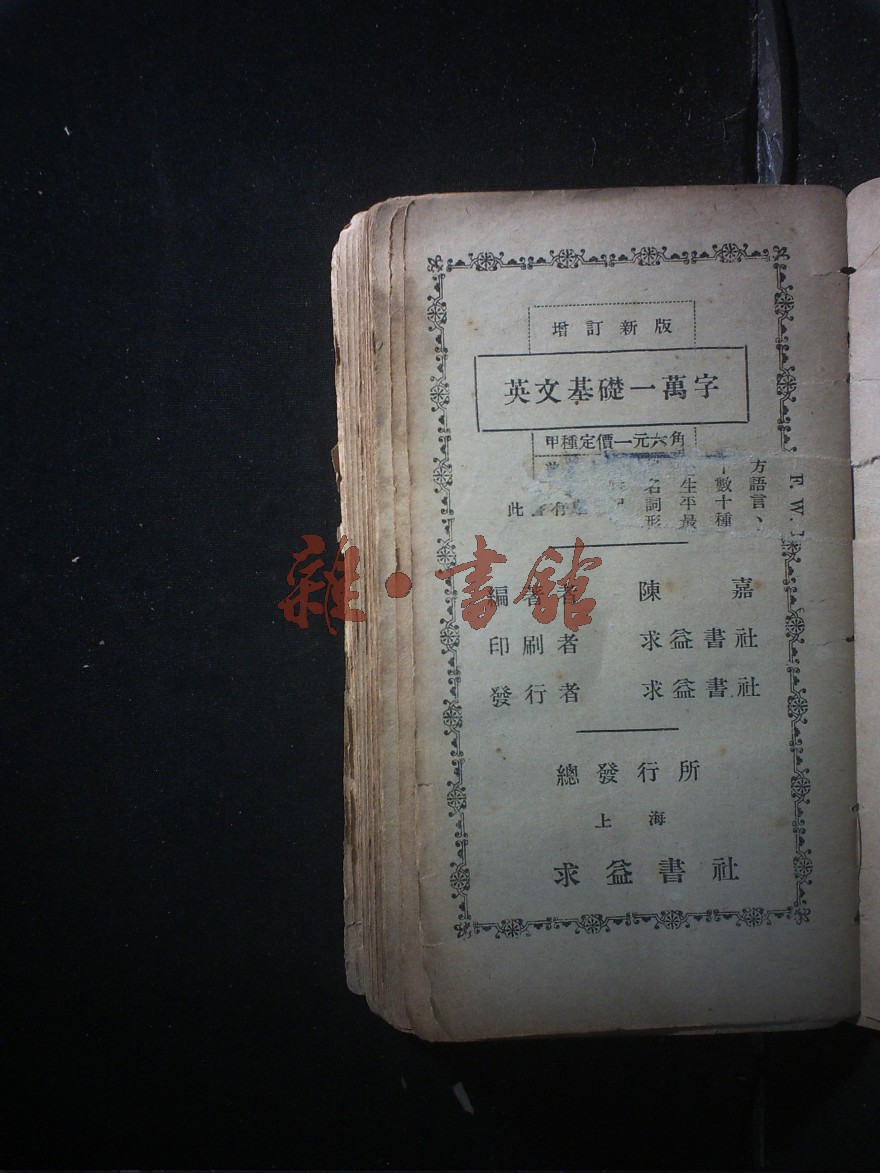 增訂新版
英文基礎一萬字
甲種定價一元六角
方語言、
數十種
生平最
名詞形
此
F. W.
雜·書館
編著者 陳嘉
印刷者 求益書社
發行者 求益書社
總發行所
上海
求益書社